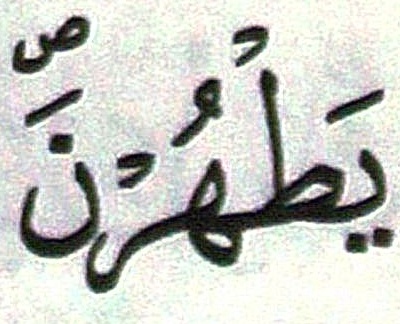 يَطْهُرْنَۖ